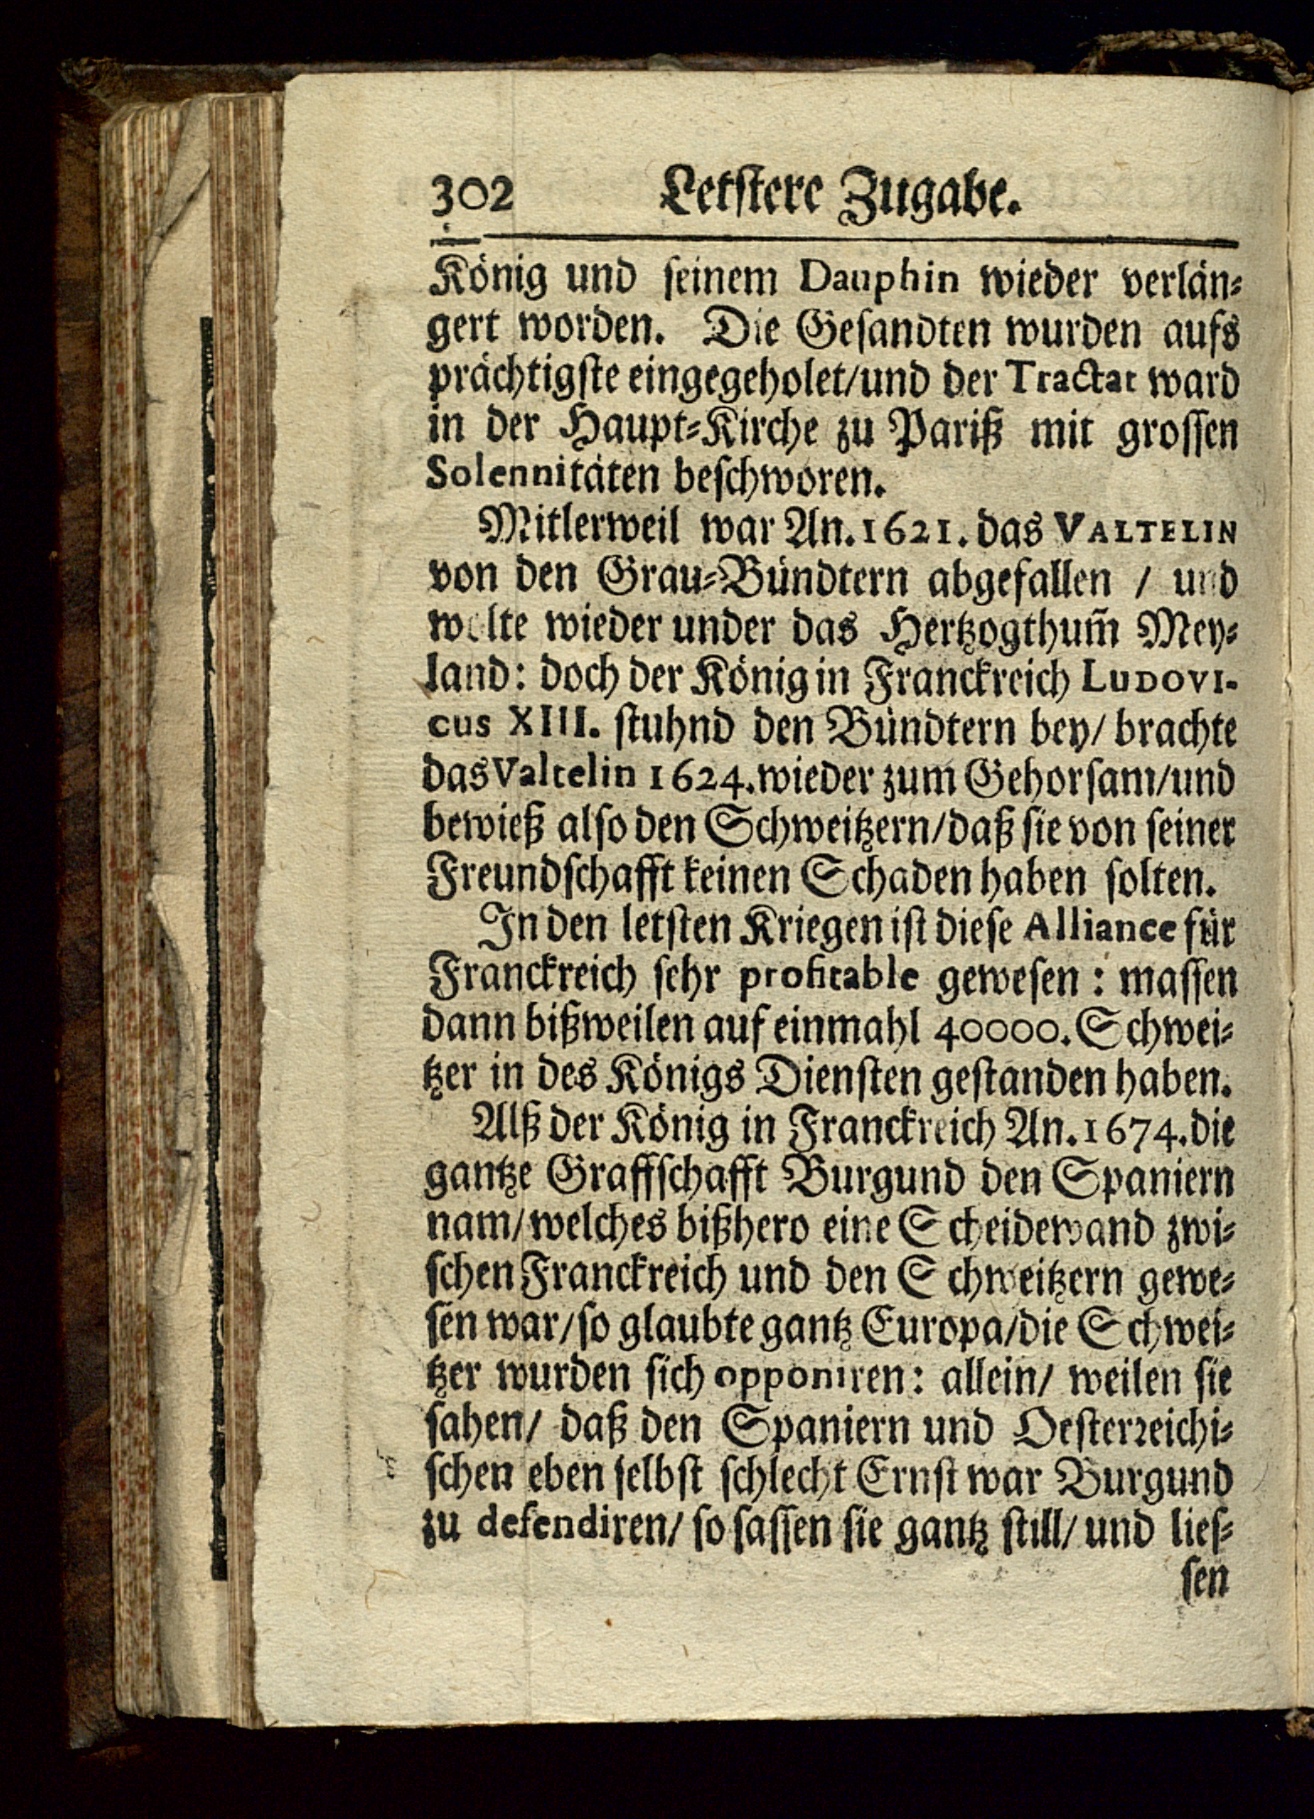 302 Letstere Zugabe.
König und seinem Dauphin wieder verlän-
gert worden. Die Gesandten wurden aufs
prächtigste eingegeholet/und der Tractat ward
in der Haupt-Kirche zu Pariß mit grossen
Solennitäten beschworen.
Mitlerweil war An. 1621. das VALTELIN
von den Grau-Bündtern abgefallen / und
wolte wieder under das Hertzogthum̃ Mey-
land: doch der König in Franckreich LUDOVI-
cus XIII. stuhnd den Bündtern bey/ brachte
das Valtelin 1624. wieder zum Gehorsam/und
bewieß also den Schweitzern/daß sie von seiner
Freundschafft keinen Schaden haben solten.
In den letsten Kriegen ist diese Alliance für
Franckreich sehr profitable gewesen: massen
dann bißweilen auf einmahl 40000. Schwei-
tzer in des Königs Diensten gestanden haben.
Alß der König in Franckreich An. 1674. die
gantze Graffschafft Burgund den Spaniern
nam/welches bißhero eine Scheidewand zwi-
schen Franckreich und den Schweitzern gewe-
sen war/so glaubte gantz Europa/die Schwei-
tzer wurden sich opponiren: allein/ weilen sie
sahen/ daß den Spaniern und Oesterreichi-
schen eben selbst schlecht Ernst war Burgund
zu defendiren/ so sassen sie gantz still/ und lies-
sen